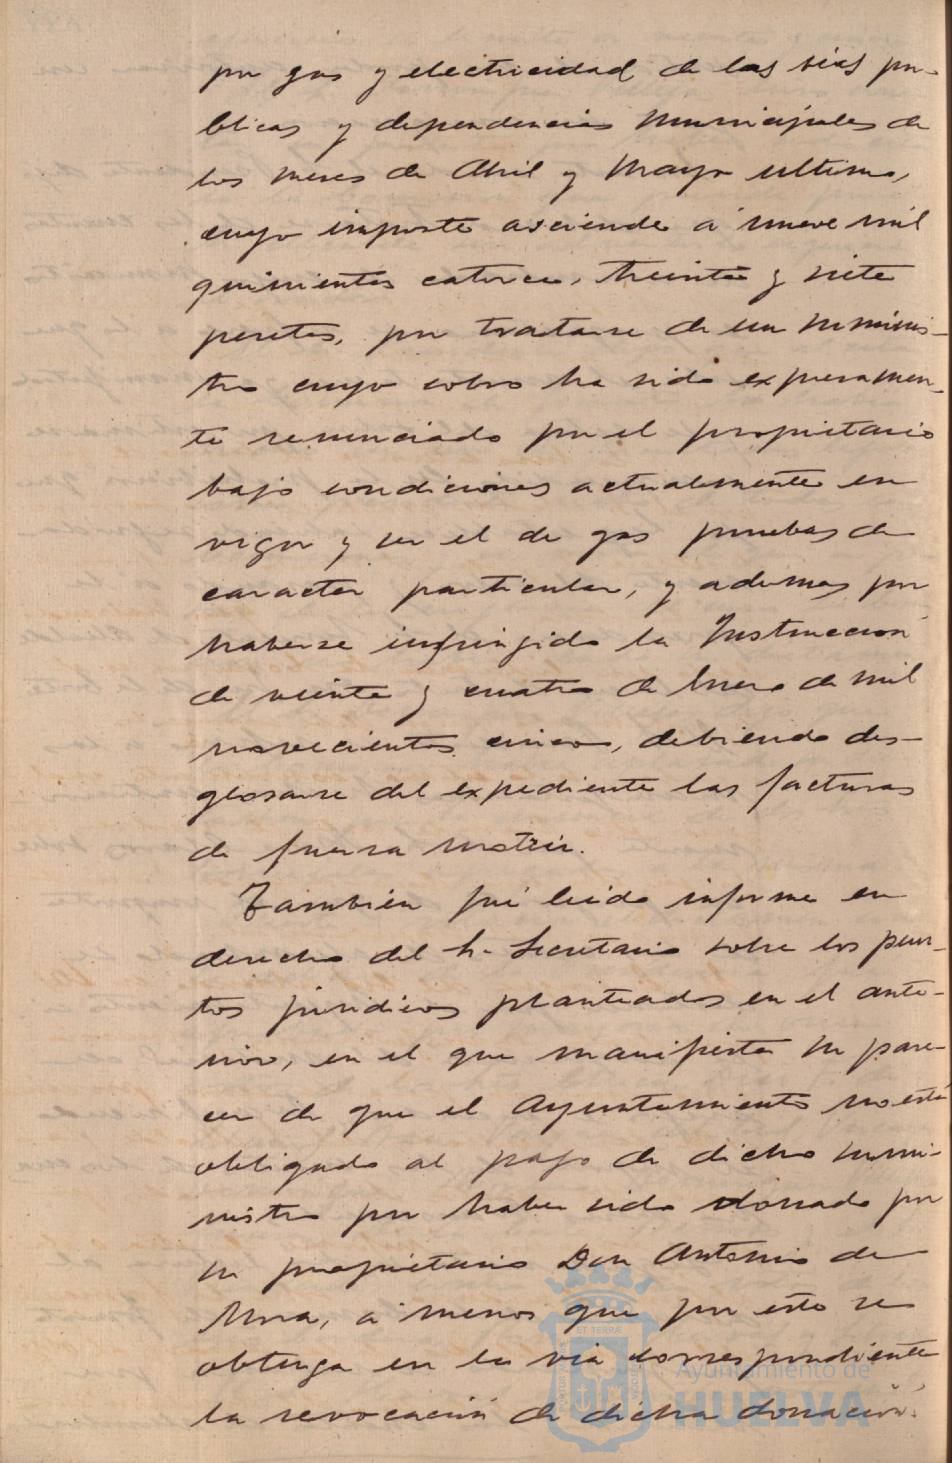 por gas y electricidad de las vias pu-
blicas y dependencias municipales de
los meses de Abril y Mayo ultimo,
cuyo importe asciende á nueve mil
quinientas catorce, treinta y siete
pesetas, por tratarse de un suminis-
tro cuyo cobro ha sido expresamen-
te renunciado por el propietario
bajo condiciones actualmente en
vigor y ser el de gas pruebas de
caracter particular, y ademas por
haberse infringido la Instruccion
de veinte y cuatro de Enero de mil
novecientos cinco, debiendo des-
glosarse del expediente las facturas
de fuerza motriz.
Tambien fué leido informe en
derecho del Sr. Secretario sobre los pun-
tos juridicos planteados en el ante-
rior, en el que manifiesta su pare-
cer de que el Ayuntamiento no está
obligado al pago de dicho sumi-
nistro por haber sido donado por
su propietario Don Antonio de
Mora, á menos que por este se
obtenga en la via correspondiente
la revocación de dicha donación.
Ayuntamiento de
HUELVA